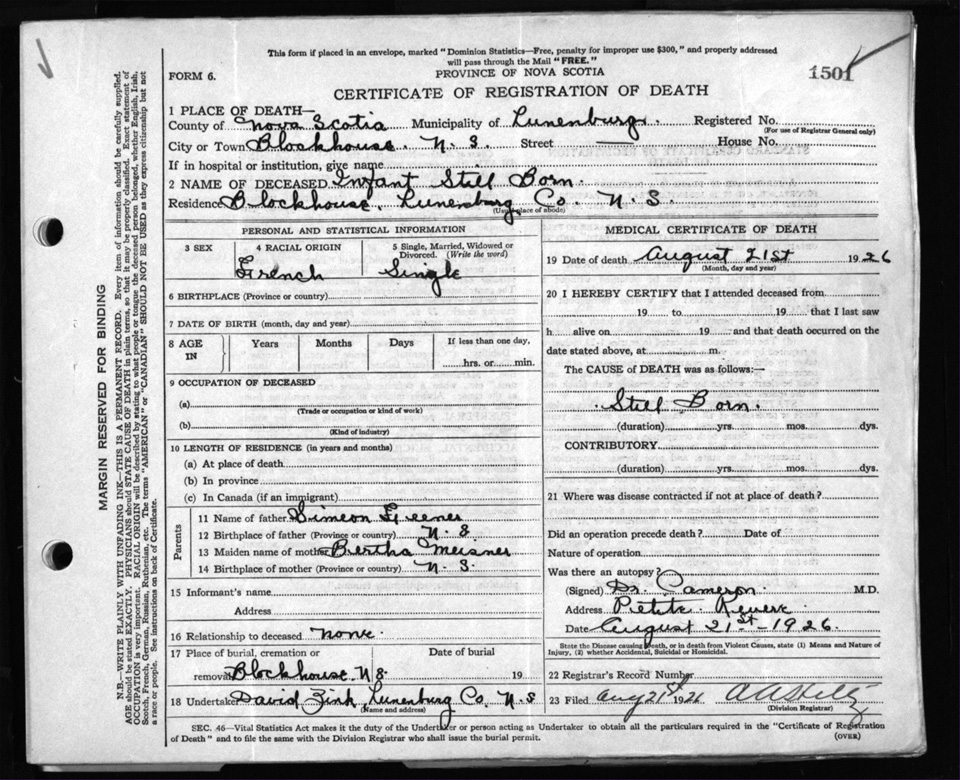 This form if placed in an envelope, marked "Dominion Statistics—Free, penalty for improper use $300," and properly addressed
will pass through the Mail "FREE."
FORM 6.
PROVINCE OF NOVA SCOTIA
1501
CERTIFICATE OF REGISTRATION OF DEATH
1 PLACE OF DEATH—
County of Nova Scotia Municipality of Lunenburg. Registered No.
(For use of Registrar General only)
City or Town Blockhouse. N. S. Street — House No.
If in hospital or institution, give name
2 NAME OF DECEASED Infant Still Born.
Residence Blockhouse, Lunenburg Co. N. S.
(Usual place of abode)
PERSONAL AND STATISTICAL INFORMATION
3 SEX
4 RACIAL ORIGIN
French
5 Single, Married, Widowed or
Divorced. (Write the word)
Single
6 BIRTHPLACE (Province or country)
7 DATE OF BIRTH (month, day and year)
8 AGE
IN
Years Months Days If less than one day,
hrs. or min.
9 OCCUPATION OF DECEASED
(a)
(Trade or occupation or kind of work)
(b)
(Kind of industry)
10 LENGTH OF RESIDENCE (in years and months)
(a) At place of death
(b) In province
(c) In Canada (if an immigrant)
Parents
11 Name of father Simeon
12 Birthplace of father (Province or country) N. S.
13 Maiden name of mother Bertha Meisner
14 Birthplace of mother (Province or country) N. S.
15 Informant's name
Address
16 Relationship to deceased none.
17 Place of burial, cremation or
removal Blockhouse, N S.
Date of burial
19
18 Undertaker David Zink, Lunenburg Co. N. S
(Name and address)
MEDICAL CERTIFICATE OF DEATH
19 Date of death August 21st 1926
(Month, day and year)
20 I HEREBY CERTIFY that I attended deceased from
19 to 19 that I last saw
h alive on 19 and that death occurred on the
date stated above, at m.
The CAUSE of DEATH was as follows:—
Still Born.
(duration) yrs. mos. dys.
CONTRIBUTORY
(duration) yrs. mos. dys.
21 Where was disease contracted if not at place of death?
Did an operation precede death? Date of
Nature of operation
Was there an autopsy?
(Signed) Dr. Cameron M.D.
Address Petite Reverie
Date August 21st - 1926.
State the Disease causing Death, or in death from Violent Causes, state (1) Means and Nature
of Injury, (2) whether Accidental, Suicidal or Homicidal.
22 Registrar's Record Number
23 Filed Aug 21st 1926
(Division Registrar)
SEC. 46—Vital Statistics Act makes it the duty of the Undertaker or person acting as Undertaker to obtain all the particulars required in the "Certificate of Registration
of Death" and to file the same with the Division Registrar who shall issue the burial permit.
(OVER)
MARGIN RESERVED FOR BINDING
N.B.—WRITE PLAINLY WITH UNFADING INK—THIS IS A PERMANENT RECORD. Every item of information should be carefully supplied.
AGE should be stated EXACTLY. PHYSICIANS should STATE CAUSE OF DEATH in plain terms, so that it may be properly classified. Exact statement of
OCCUPATION is very important. RACIAL ORIGIN will be described by stating to what people or tongue the deceased person belonged, whether English, Irish,
Scotch, French, German, Russian, Ruthenian, etc. The terms "AMERICAN" or "CANADIAN" SHOULD NOT BE USED as they express citizenship but not
a race or people. See instructions on back of Certificate.